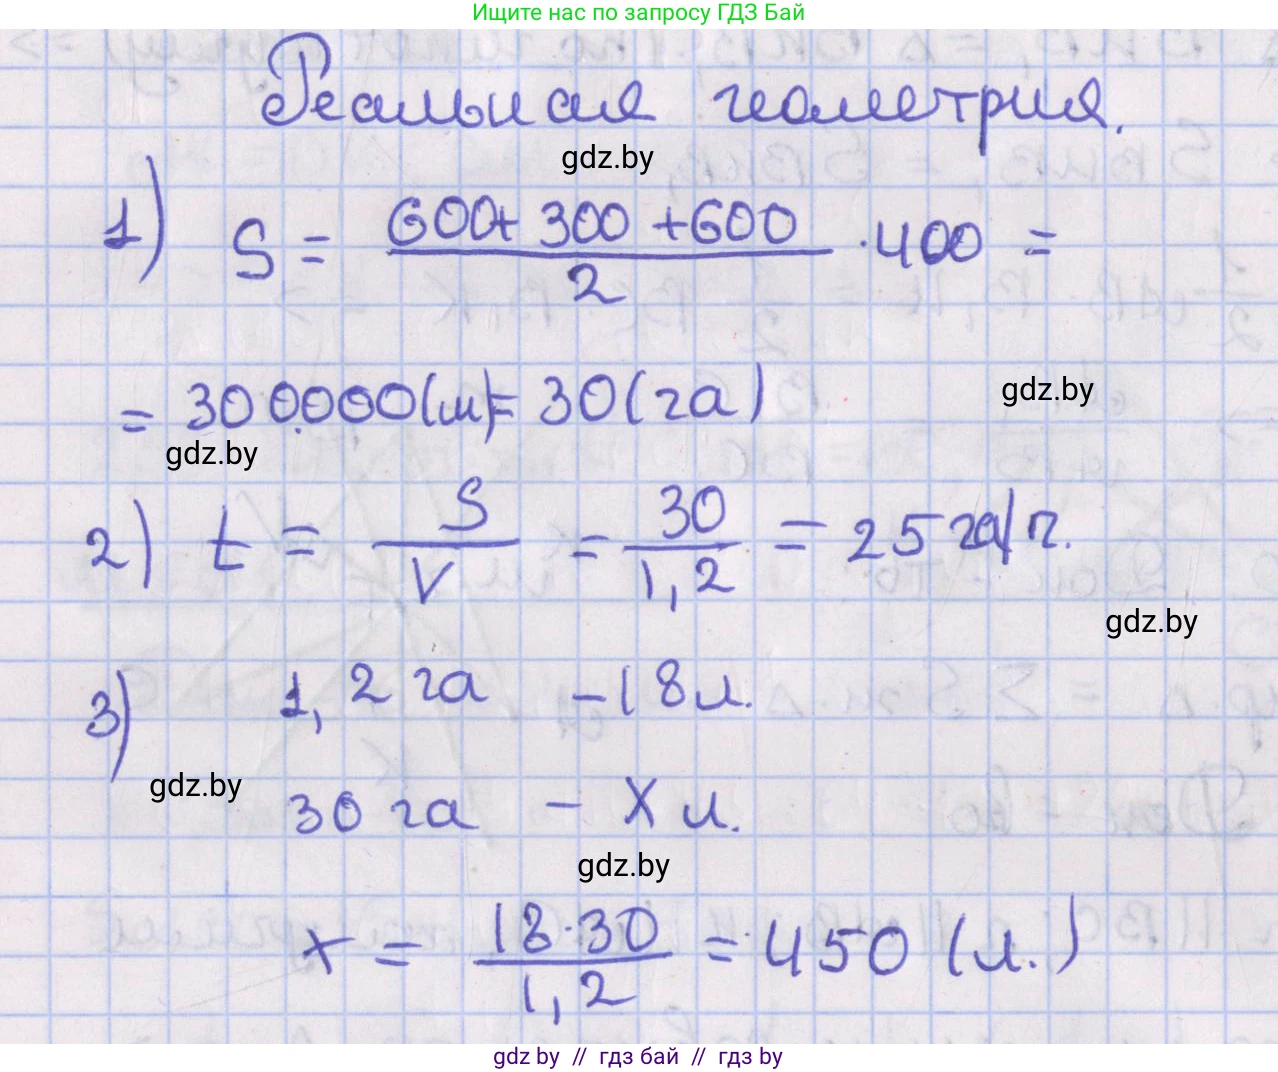 Ищите нас по запросу ГДЗ Бай
Реальная геометрия.
gdz.by
1) S = (600 + 300 + 600)/2 · 400 =
= 300000 (м) = 30 (га)
gdz.by
gdz.by
2) t = S/V = 30/1,2 = 25 га/г.
gdz.by
3) 1,2 га – 18 л.
gdz.by
30 га – х л.
gdz.by
x = 18·30/1,2 = 450 (л.)
gdz by // гдз бай // гдз by